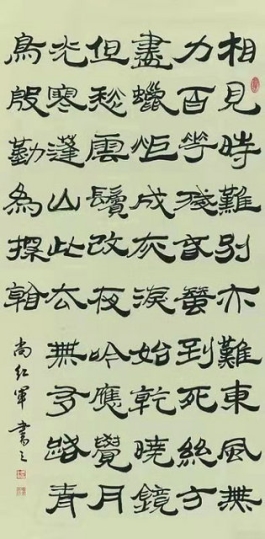 相見時難別亦難東風無
力百花殘春蠶到死絲方
盡蠟炬成灰淚始乾曉鏡
但愁雲鬢改夜吟應覺月
光寒蓬山此去無多路青
鳥殷勤為探看
尚紅軍書之